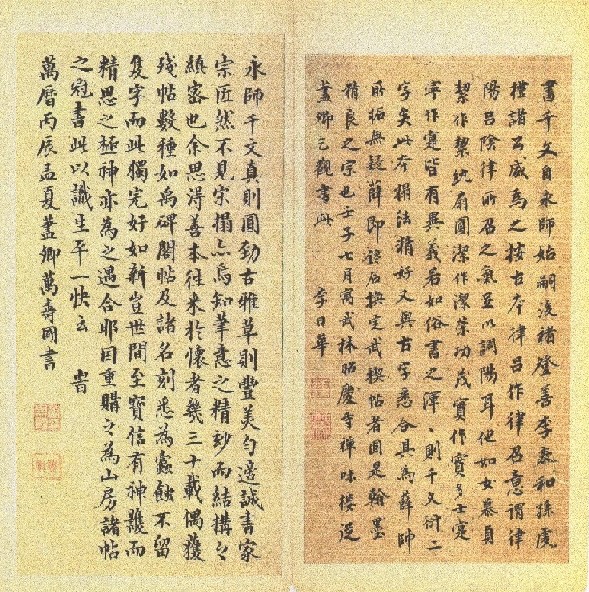 書千文自永師始嗣後褚登善李懷和孫虔
禮諸公咸為之按古本律呂作律召意謂律
陽呂陰律所召之氣至以調陽耳他如女慕貞
絜作絜紈扇圓潔作潔崇功茂實作寔多士寔
寧作寔皆有異義若如俗書之渾〻則千文衍二
字矣此本搨法精好又與古字悉合其為薛帥
所拓無疑薛即 后換定武楔帖者固是翰墨
精良之宗也壬子七月寓武林昭慶寺禪味樓從
藎卿兄觀書此 李日華
永師千文真則圓勁古雅草則豐美勻適誠書家
宗匠然不見宋搨亦烏知筆意之精妙而結構之
縝密也余思得善本往來於懷者幾三十載偶獲
殘帖數種如禹碑閣帖及諸名刻悉為蠹蝕不留
隻字而此獨完好如新豈世間至寶信有神護而
精思之極神亦為之遇合耶因重購之為山房諸帖
之冠書此以識生平一快云 旹
萬曆丙辰孟夏藎卿萬壽國書